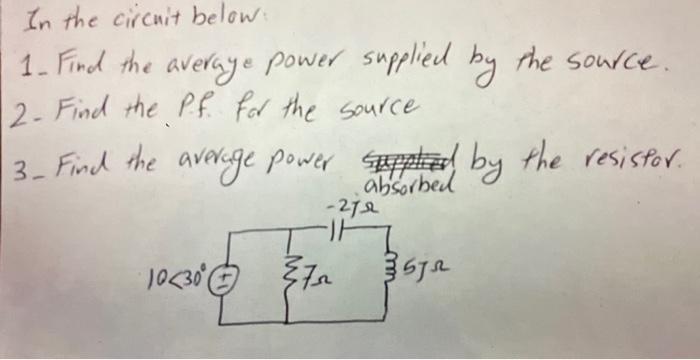 In the circuit below:
1- Find the average power supplied by the source.
2- Find the P.f. for the source
3- Find the average power absorbed by the resistor.
-2jΩ
10<30°
7Ω
5jΩ